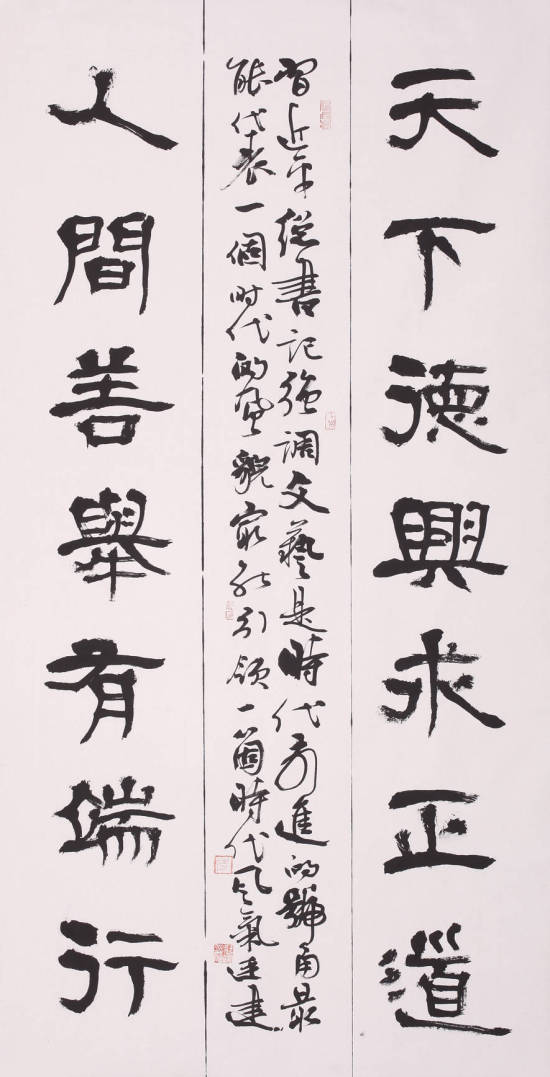 天下德興求正道
習近平總書記強調文藝是時代前進的號角最
能代表一個时代的風貌最能引領一箇時代風氣
人間善舉有端行